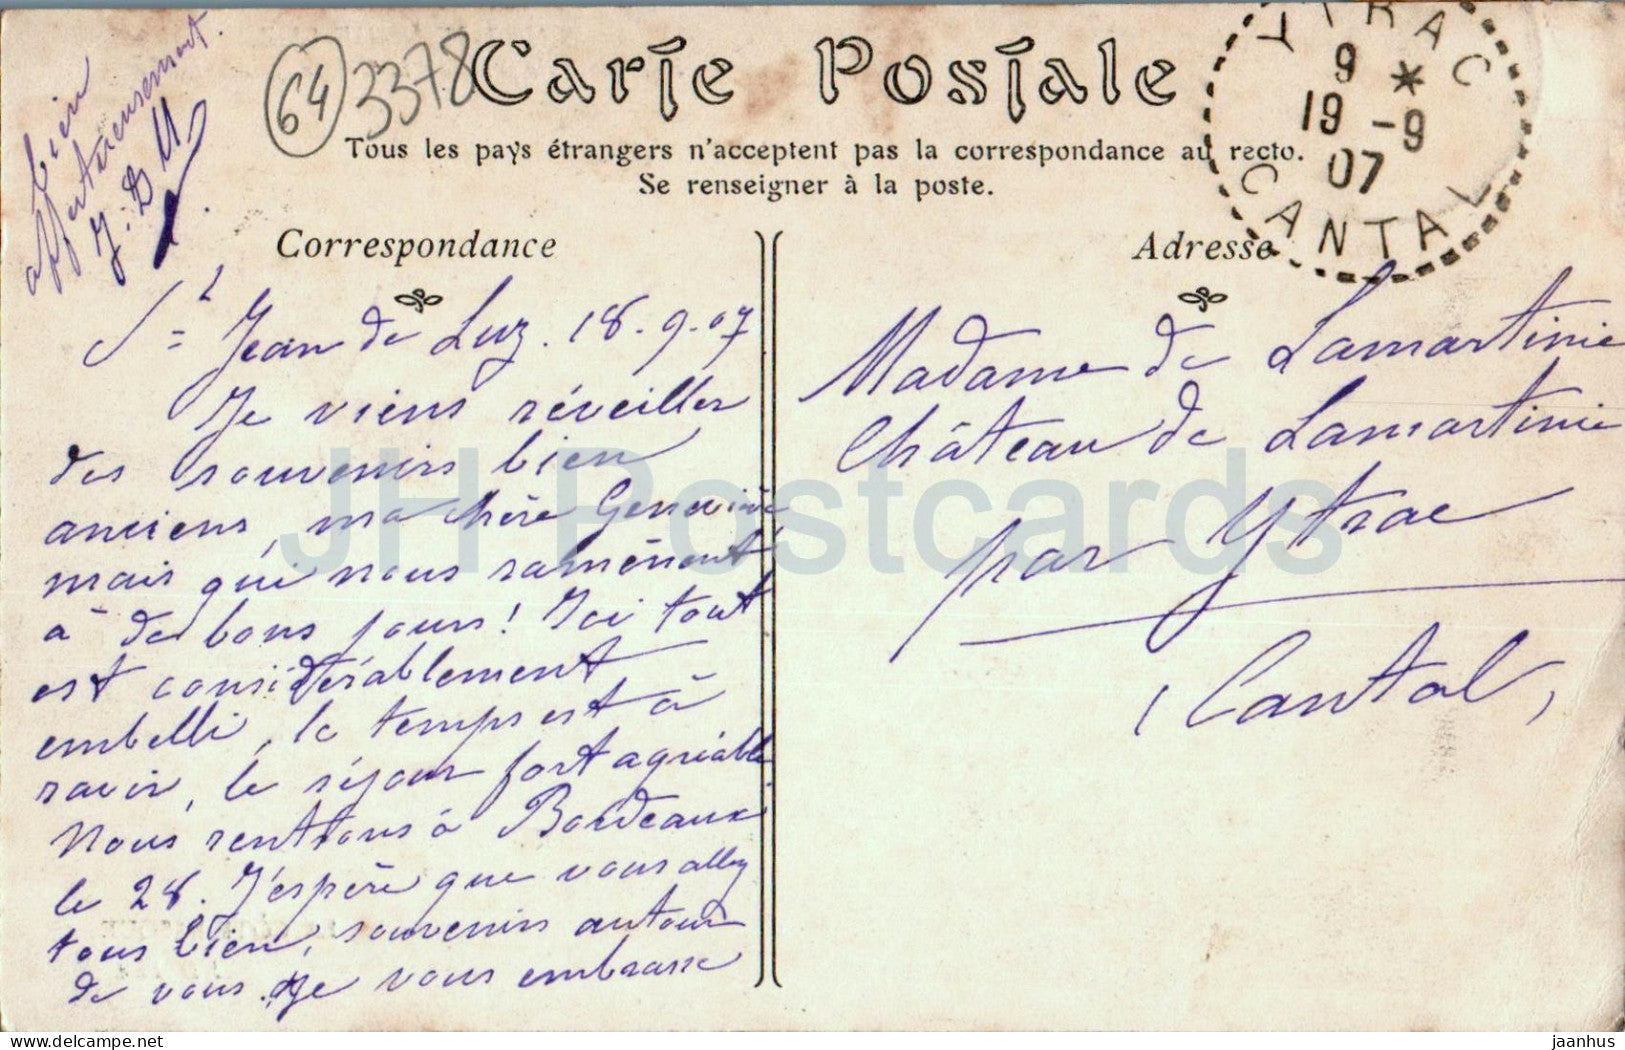 Carte Postale
Tous les pays étrangers n'acceptent pas la correspondance au recto.
Se renseigner à la poste.
64 3378
YTRAC
9 *
19 -9
07
CANTAL
Correspondance
St Jean de Luz. 18.9.07
Je viens réveiller
des souvenirs bien
anciens, ma chère Geneviève
mais qui nous ramènent
à de bons jours! Ici tout
est considérablement
embelli, le temps est à
ravir, le séjour fort agréable
Nous rentrons à Bordeaux
le 28. J'espère que vous allez
tous bien, souvenirs autour
de vous. Je vous embrasse
bien
affectueusement.
J. D M
Adresse
Madame de Lamartinie
Château de Lamartinie
par Ytrac
(Cantal)
JH Postcards
delcampe.net
jaanhus